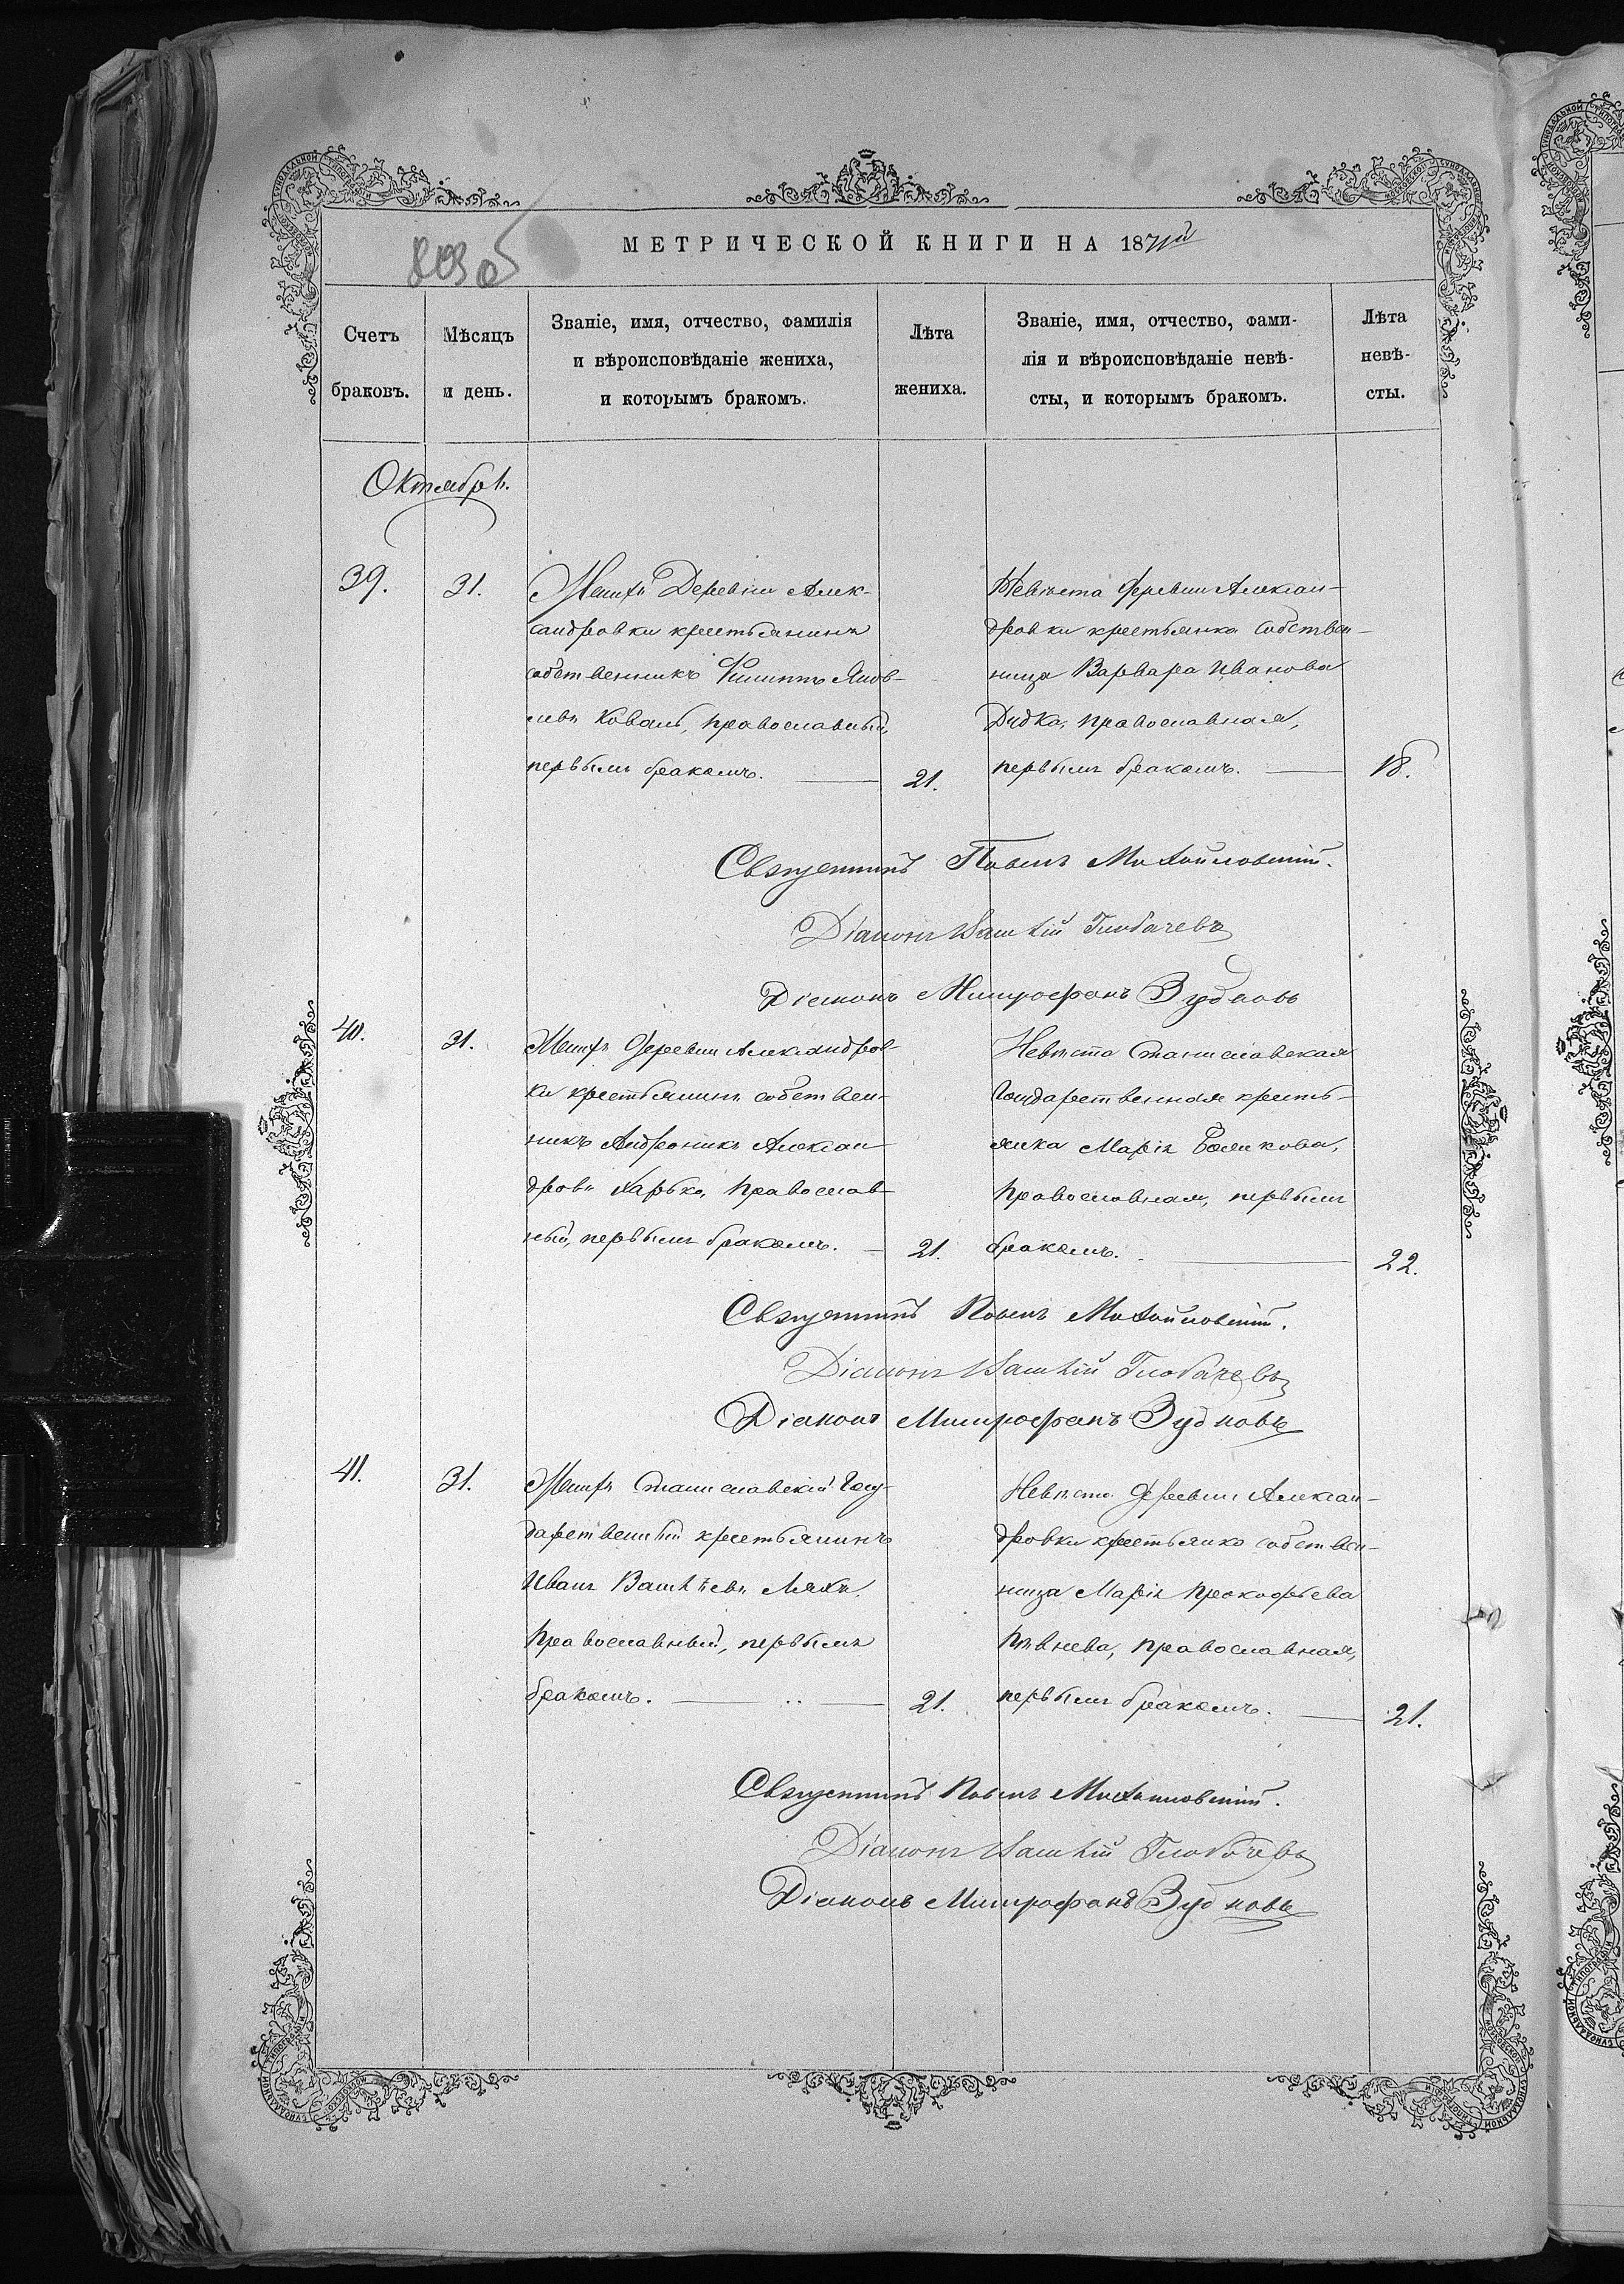 МЕТРИЧЕСКОЙ КНИГИ НА 1871й
803 об
Счетъ браковъ.
Мѣсяцъ и день.
Званіе, имя, отчество, фамилія
и вѣроисповѣданіе жениха,
и которымъ бракомъ.
Лѣта жениха.
Званіе, имя, отчество, фами-
лія и вѣроисповѣданіе невѣ-
сты, и которымъ бракомъ.
Лѣта невѣ-
сты.
Октябрь.
39.
31.
Женихъ Деревни Алек-
сандровки крестьянинъ
собственникъ Филиппъ Яков-
левъ Коваль, православный,
первымъ бракомъ.
21.
Невѣста Деревни Алексан-
дровки крестьянка собствен-
ница Варвара Иванова
Дидка, православная,
первымъ бракомъ.
18.
Священникъ Павелъ Михайловскій.
Діаконъ Василій Глобачевъ
Діаконъ Митрофанъ Зубковъ
40.
31.
Женихъ Деревни Александров-
ки крестьянинъ собствен-
никъ Андроникъ Алексан-
дровъ Харько, православ-
ный, первымъ бракомъ.
21.
Невѣста Станиславская
Государственная кресть-
янка Марія
православная, первымъ
бракомъ.
22.
Священникъ Павелъ Михайловскій.
Діаконъ Василій Глобачевъ
Діаконъ Митрофанъ Зубковъ
41.
31.
Женихъ Станиславскій Госу-
дарственный крестьянинъ
Иванъ Васильевъ Ляхъ,
православный, первымъ
бракомъ.
21.
Невѣста Деревни Алексан-
дровки крестьянка собствен-
ница Марія Прокофьева
Пивнева, православная,
первымъ бракомъ.
21.
Священникъ Павелъ Михайловскій.
Діаконъ Василій Глобачевъ
Діаконъ Митрофанъ Зубковъ